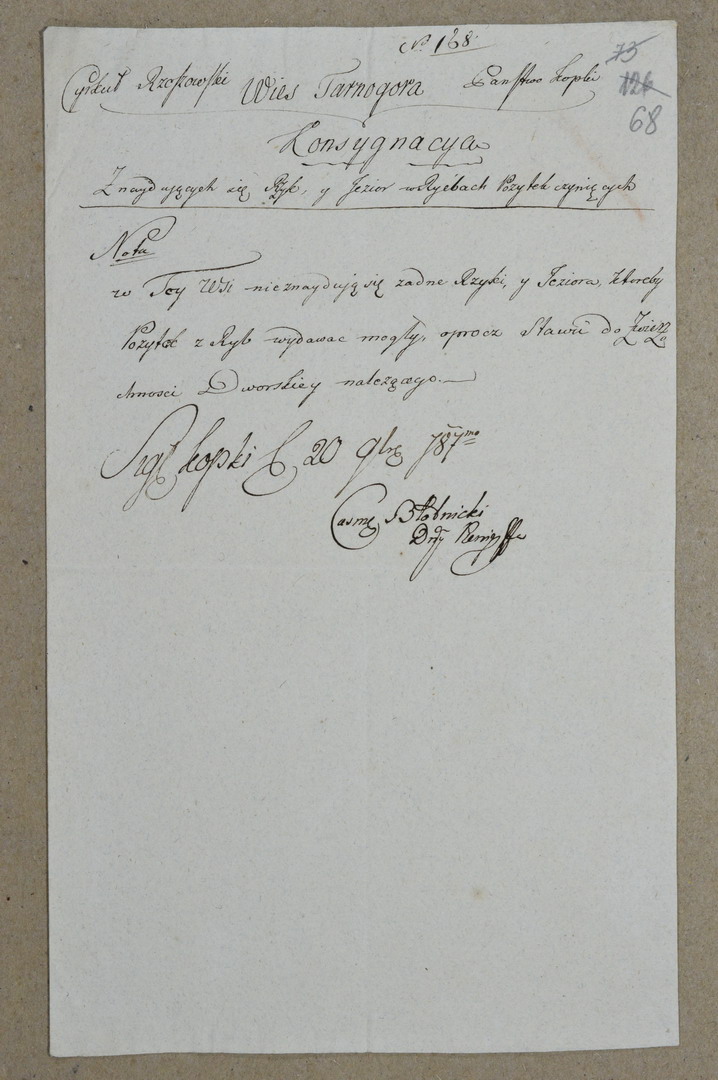 No 168.
75
126
68
Cyrkuł Rzeszowski Wies Tarnogora Panstwo Łopki
Konsygnacya
Znayduiących się Rzyk, y Jezior w Rybach Pozytek czyniących
Nota
w Tey Wsi nieznayduią się zadne Rzyki, y Jeziora, ktoreby
Pozytek z Ryb wydawac mogły, oprocz Stawu do Zwierz
chnosci Dworskiey nalezącego.
Łopki 20 9bre 787mo
Casimę